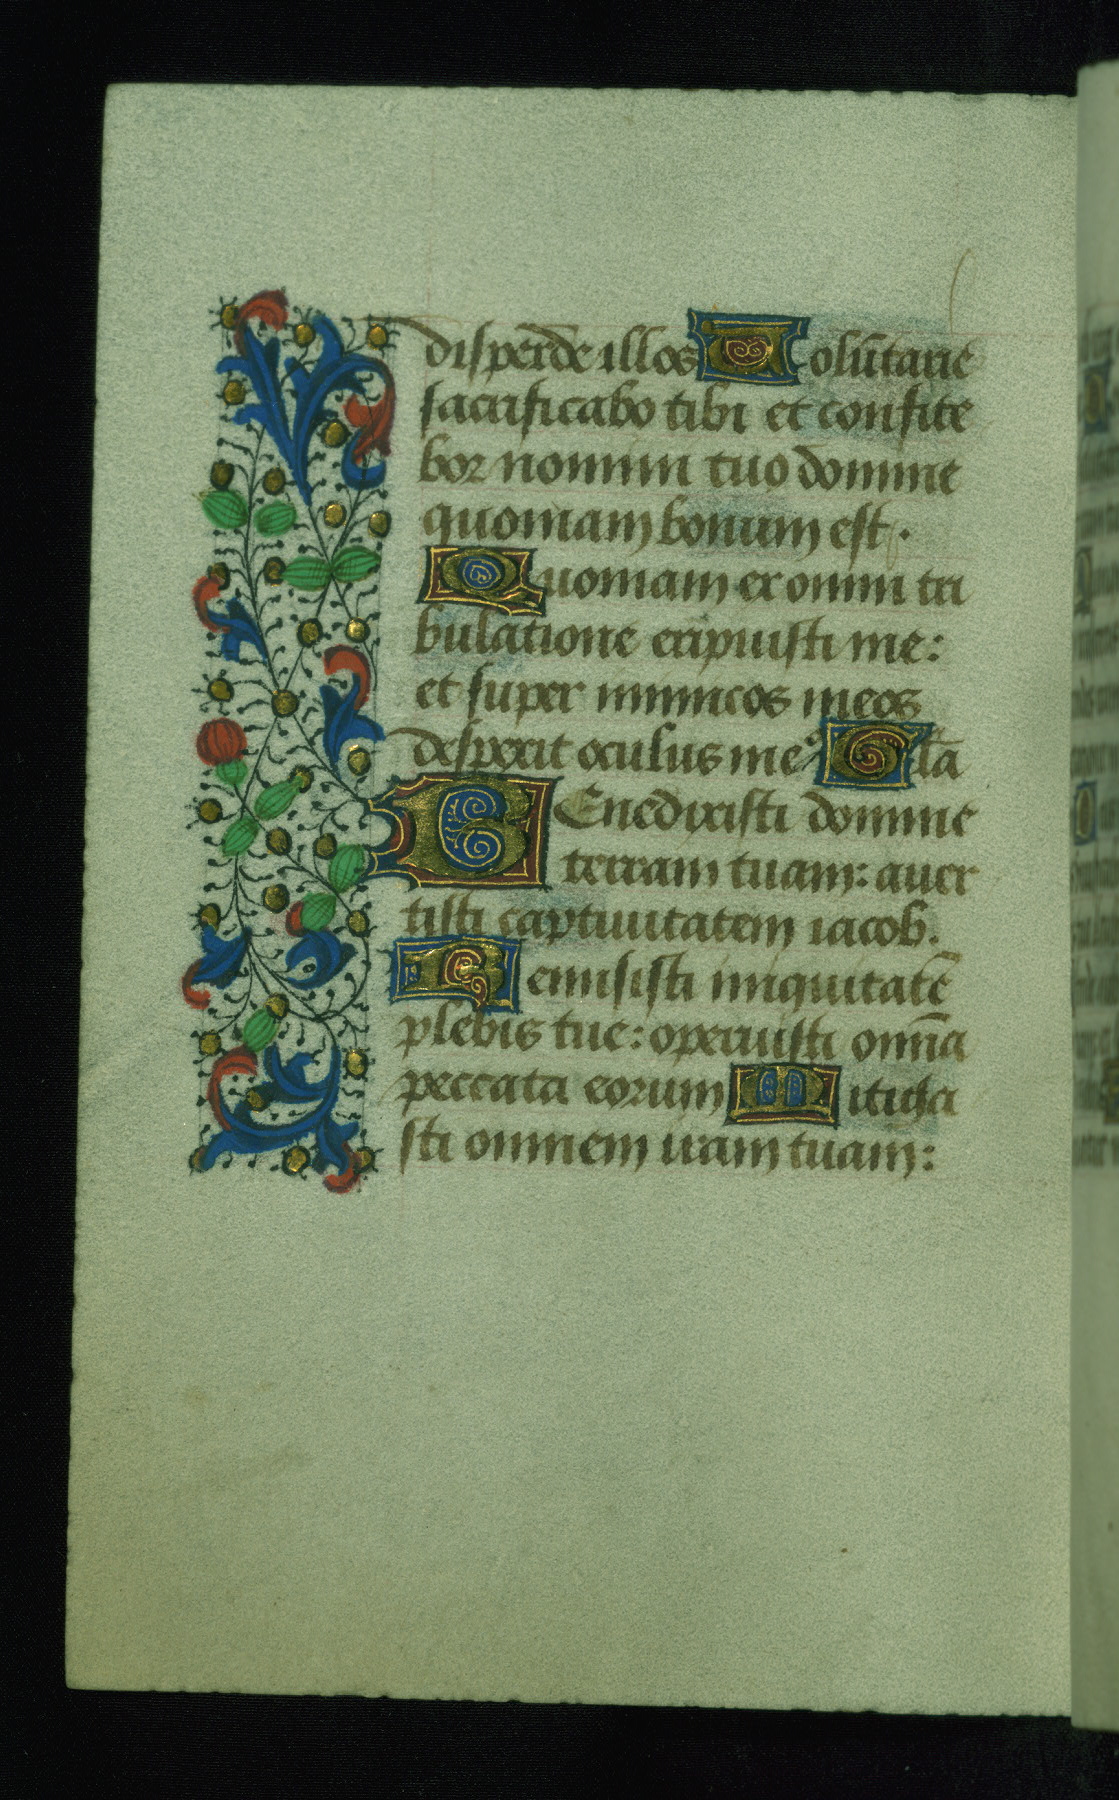 disperde illos Volūtarie
sacrificabo tibi et confite
bor nomini tuo domine
quoniam bonum est.
Quoniam ex omni tri
bulatione eripuisti me:
et super inimicos meos
despexit oculus me⁹ Gl̄a
BEnedixisti domine
terram tuam: auer
tisti captiuitatem iacob.
Remisisti iniquitatē
plebis tue: operuisti om̄ia
peccata eorum Mitiga
sti omnem iram tuam: